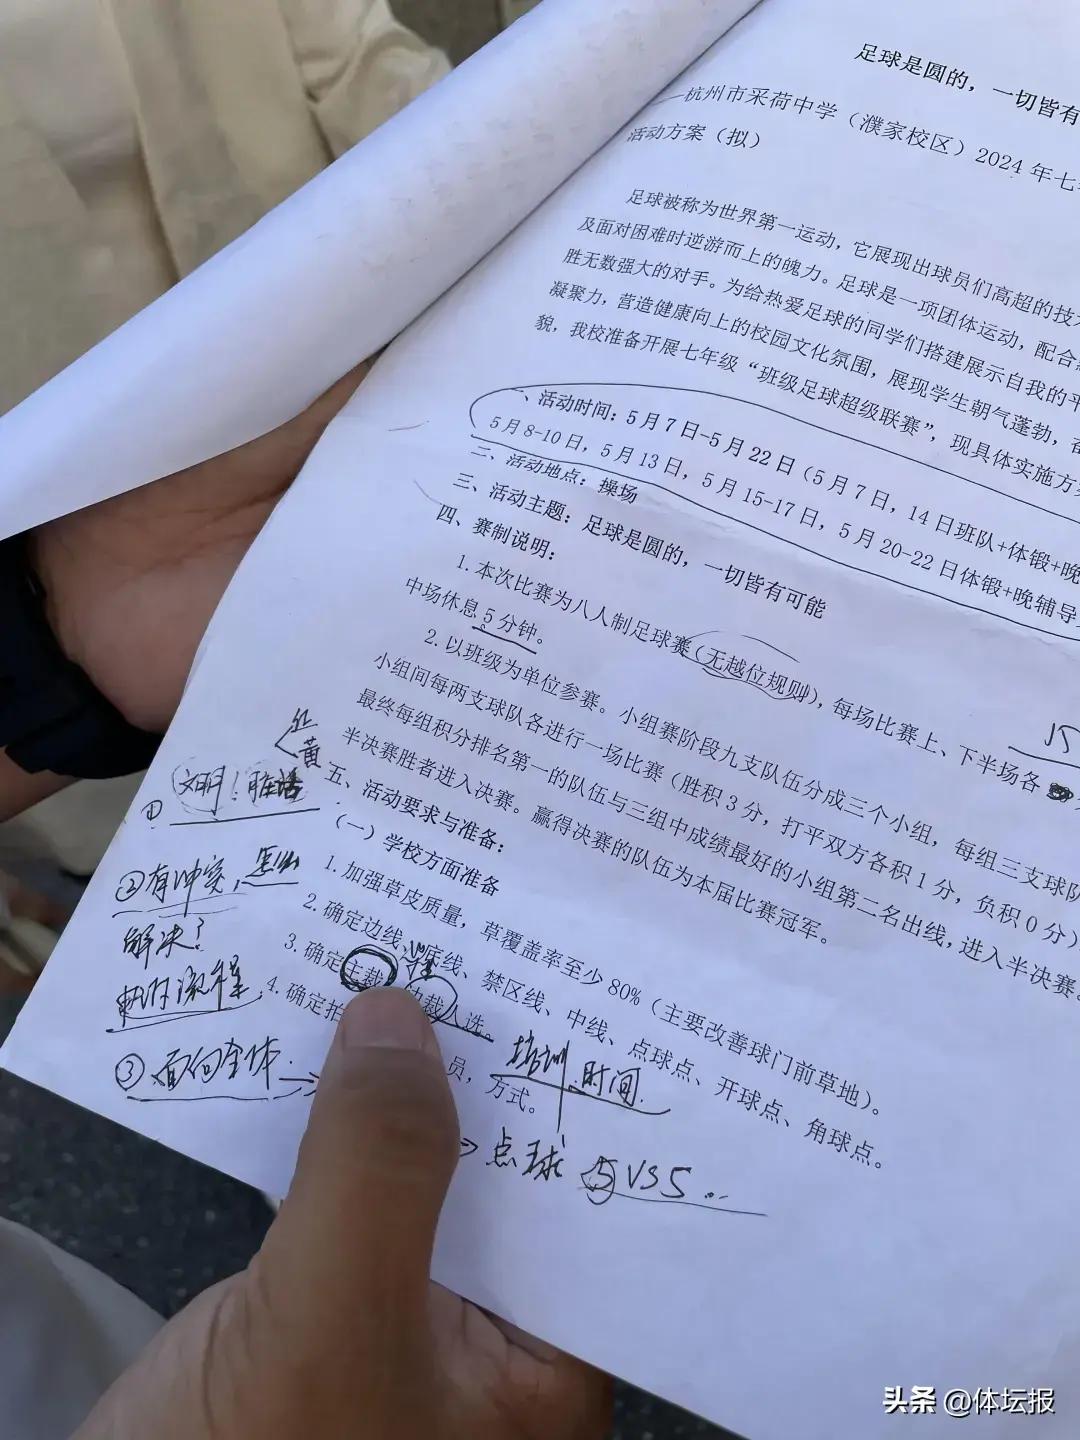 足球是圆的，一切皆有
—杭州市采荷中学（濮家校区）2024 年七
活动方案（拟）
足球被称为世界第一运动，它展现出球员们高超的技
及面对困难时逆游而上的魄力。足球是一项团体运动，配合
胜无数强大的对手。为给热爱足球的同学们搭建展示自我的平
凝聚力，营造健康向上的校园文化氛围，展现学生朝气蓬勃，
貌，我校准备开展七年级“班级足球超级联赛”，现具体实施方
一、活动时间：5 月 7 日-5 月 22 日（5 月 7 日，14 日班队+体锻+晚
5 月 8-10 日，5 月 13 日，5 月 15-17 日，5 月 20-22 日体锻+晚辅导
二、活动地点：操场
三、活动主题：足球是圆的，一切皆有可能
四、赛制说明：
1. 本次比赛为八人制足球赛（无越位规则），每场比赛上、下半场各
15
中场休息 5 分钟。
2. 以班级为单位参赛。小组赛阶段九支队伍分成三个小组，每组三支球队
小组间每两支球队各进行一场比赛（胜积 3 分，打平双方各积 1 分，负积 0 分）
最终每组积分排名第一的队伍与三组中成绩最好的小组第二名出线，进入半决赛。
半决赛胜者进入决赛。赢得决赛的队伍为本届比赛冠军。
五、活动要求与准备：
（一）学校方面准备
1. 加强草皮质量，草覆盖率至少 80%（主要改善球门前草地）。
2. 确定边线、底线、禁区线、中线、点球点、开球点、角球点。
3. 确定主裁、边裁人选。
4. 确定拍
员，方式。
红
黄
① 文明！
②有冲突，怎么
解决？
流程
③面向全体.
培训 时间
⇒ 点球 5 VS 5 ..
头条 @体坛报